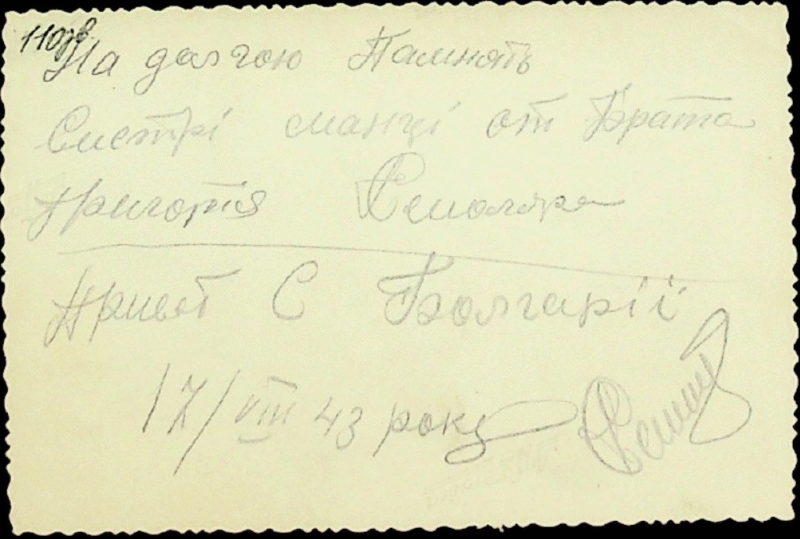 110зв
На долгою Памнять
Систрі манці от Брата
Григорія
Привет С Болгарії
17/VIII 43 року